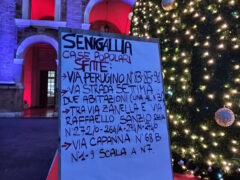 SENIGALLIA
CASE POPOLARI
SFITTE:
→VIA PERUGINO N°
→VIA STRADA SETTIMA
DUE ABITAZIONI
→TRA VIA ZANELLA E VIA
RAFFAELLO SANZIO
→VIA CAPANNA N° 68 B
N°1-9 SCALA A N°7